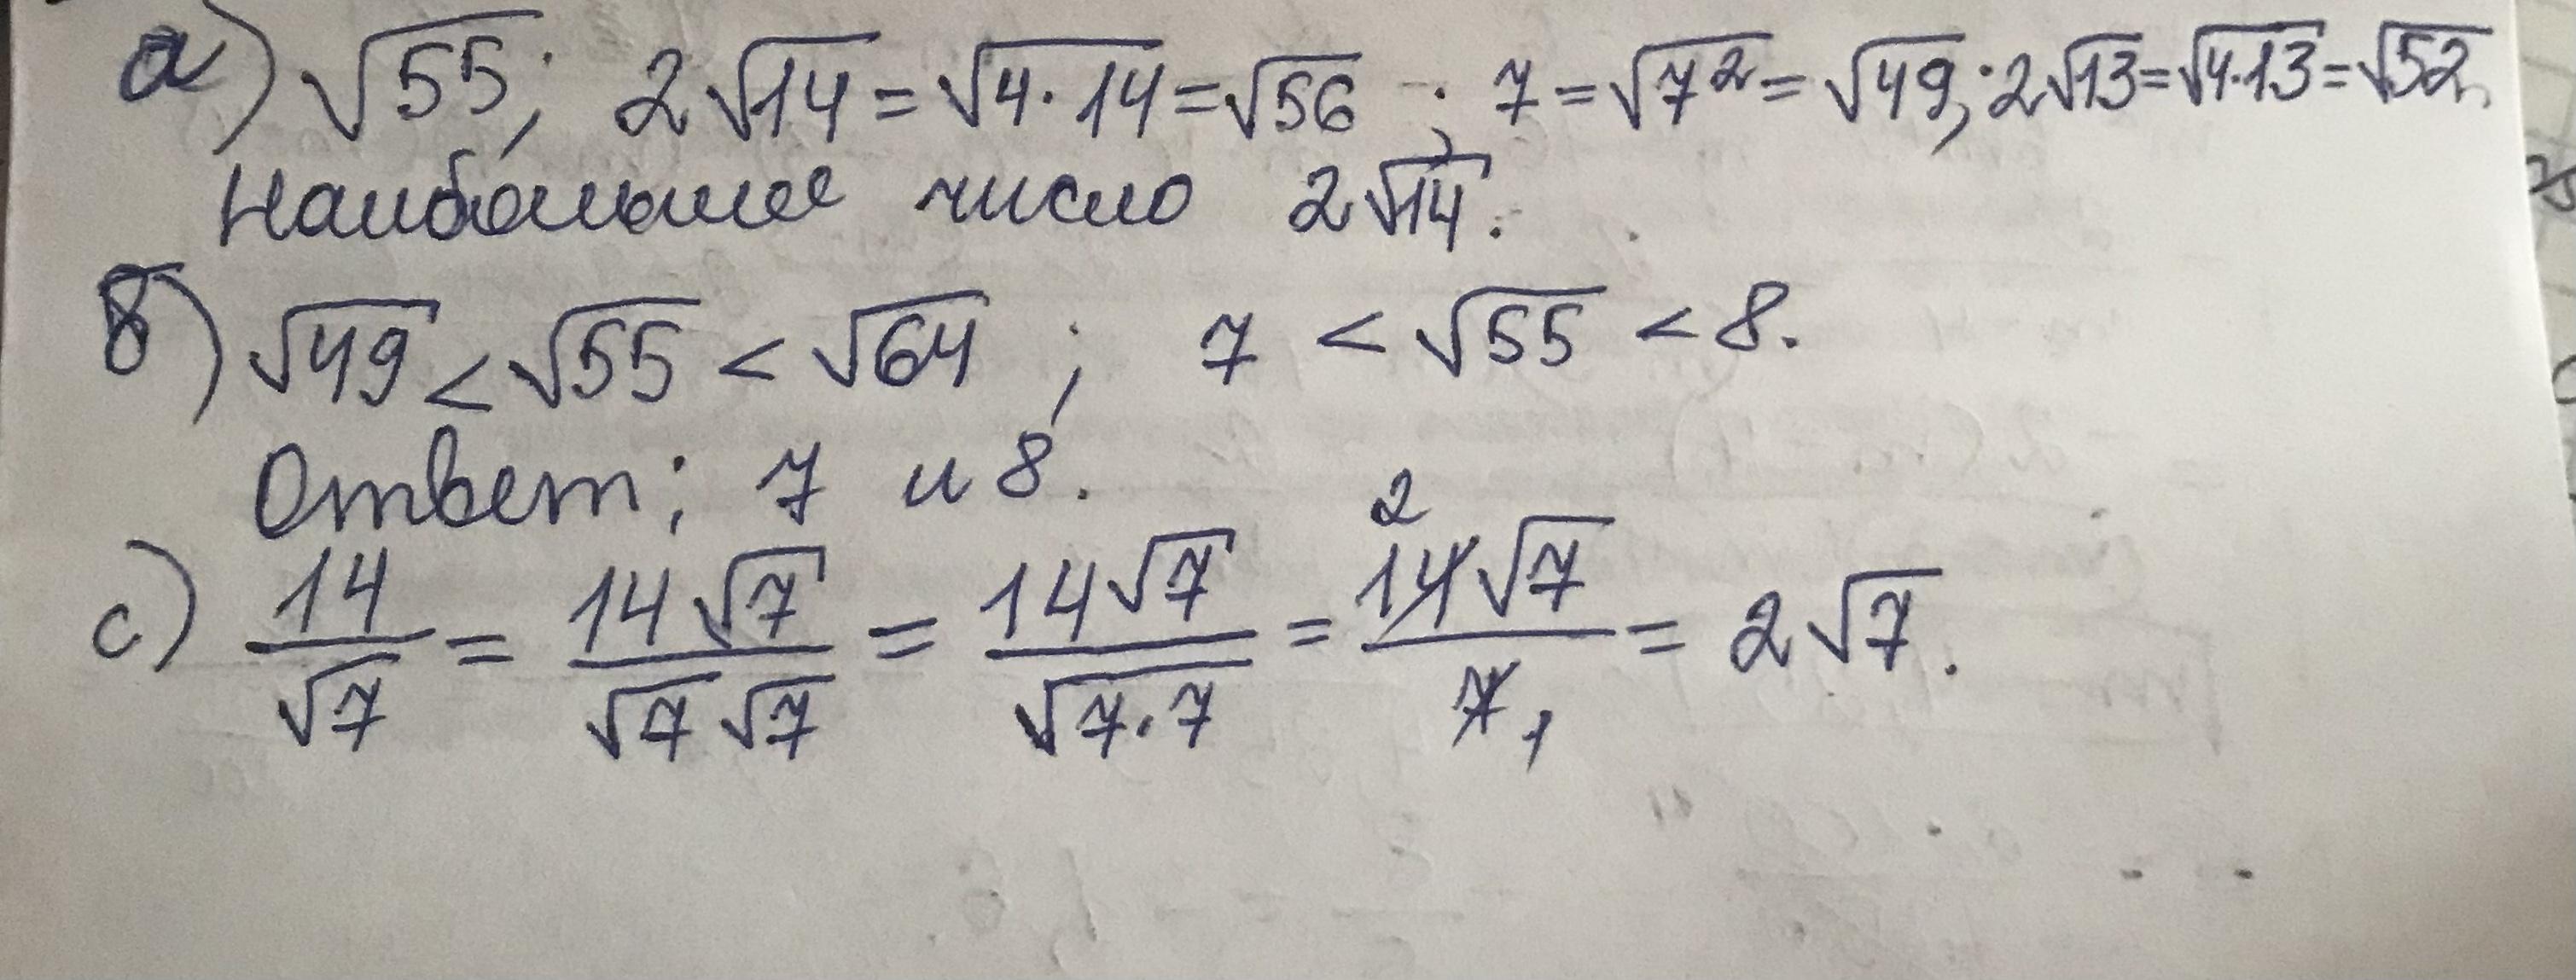 а) √55; 2√14 = √4·14 = √56 ; 7 = √7² = √49; 2√13 = √4·13 = √52.
Наибольшее число 2√14.
б) √49 < √55 < √64 ; 7 < √55 < 8.
Ответ: 7 и 8.
с) 14/√7 = 14√7/√7√7 = 14√7/√7·7 = 14√7/7 = 2√7.